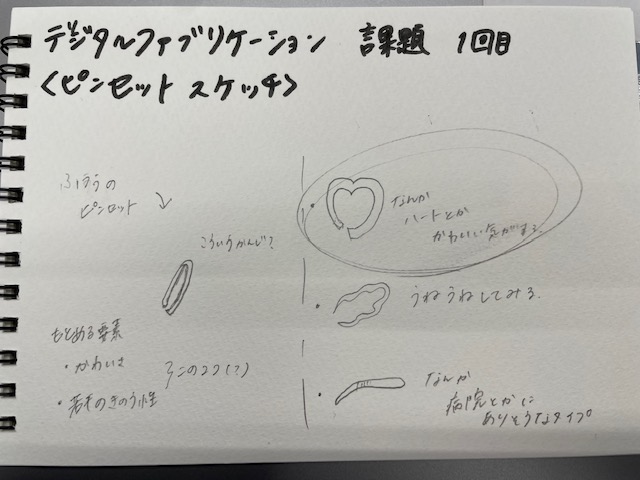 デジタルファブリケーション 課題 1回目
<ピンセット スケッチ>
ふつうの
ピンセット
こういうかんじ?
もとめる要素
・かわいさ
・若干のきのう性
この2つ(?)
・なんか
ハートとか
かわいい気がする
・うねうねしてみる.
・なんか
病院とかに
ありそうなタイプ